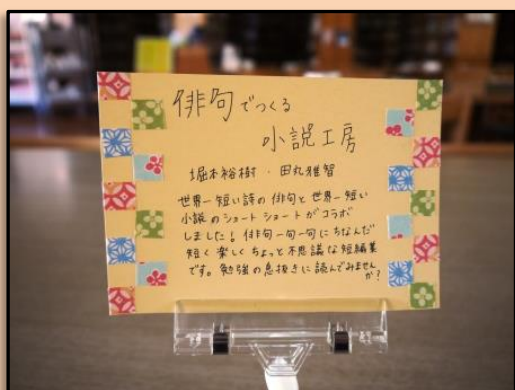 俳句でつくる
小説工房
堀本裕樹・田丸雅智
世界一短い詩の俳句と世界一短い
小説のショートショートがコラボ
しました！俳句一句一句にちなんだ
短く楽しくちょっと不思議な短編集
です。勉強の息抜きに読んでみません
か？